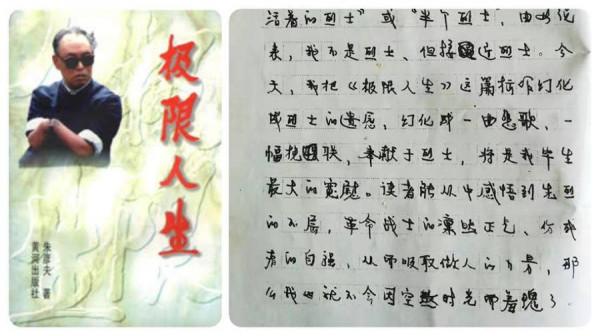 极限人生
朱彦夫 著
黄河出版社
活着的烈士”或“半个烈士”，由此说
来，我不是烈士、但接近烈士。今
天，我把《极限人生》这篇拙作幻化
成烈士的遗愿，幻化成一曲悲歌，一
幅挽联，奉献于烈士，将是我毕生
最大的宽慰。读者能从中感悟到先烈
的不屈，革命战士的凛然正气、伤残
者的自强，从而吸取做人的力量，那
么我也就不会因空熬时光而羞愧了